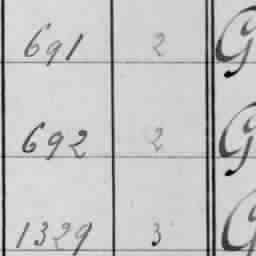 691 2 G
692 2 G
1329 3 G